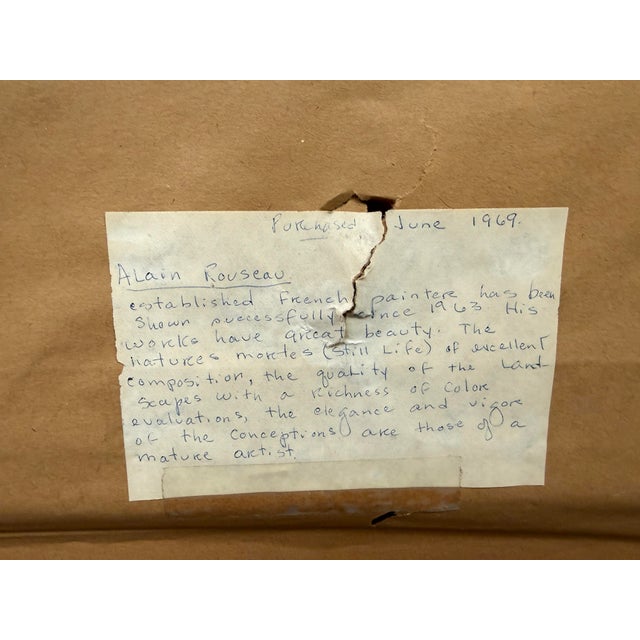 Purchased June 1969.
Alain Rouseau
established French painter has been
shown successfully since 1963 His
works have great beauty. The
natures mortes (still life) of excellent
composition, the quality of the land-
scapes with a richness of color
evaluations, the elegance and vigor
of the conceptions are those of a
mature artist.